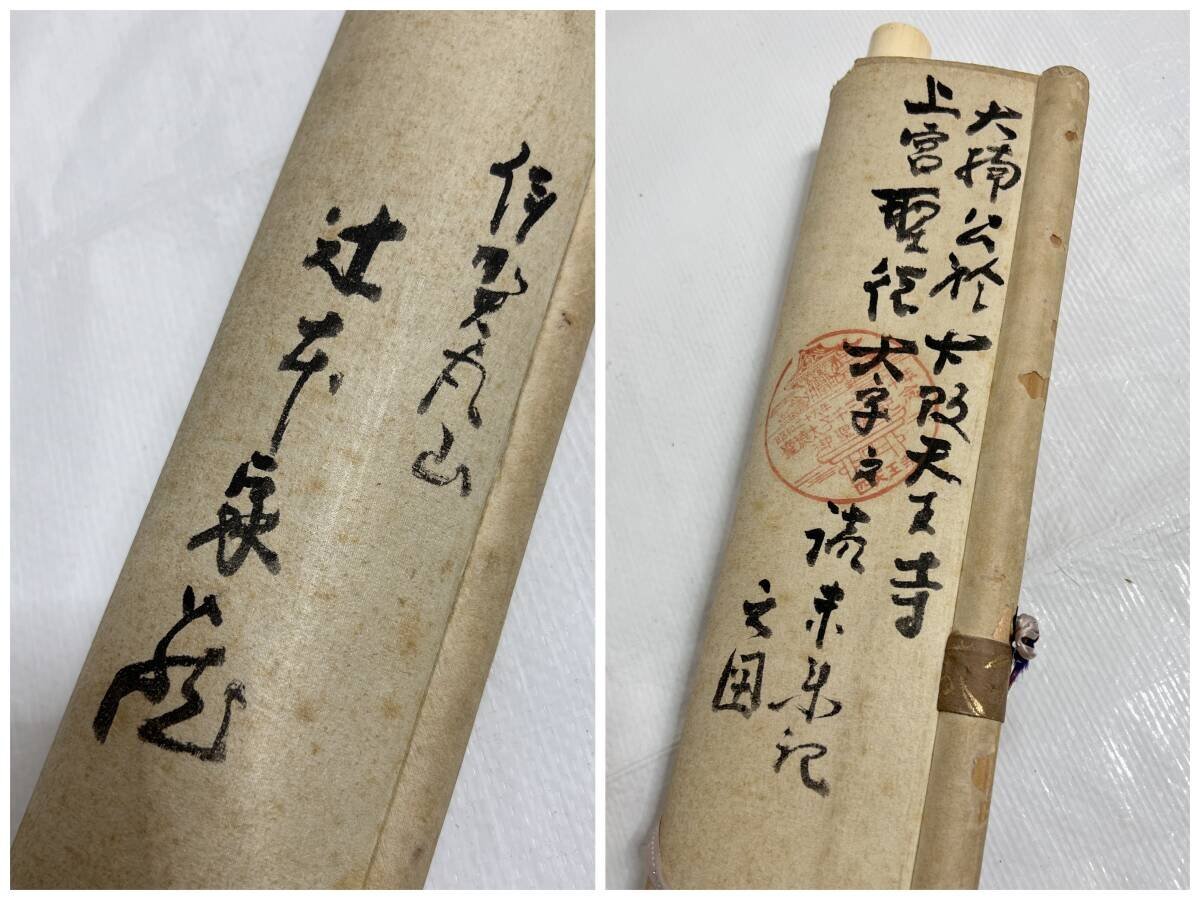 伊賀丸山
辻本辰蔵
大楠公於大阪天王寺
上宮聖徳太子之読未来記
之図